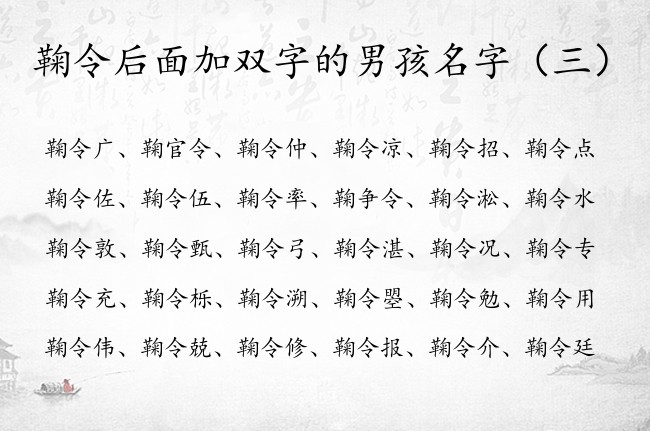 鞠令后面加双字的男孩名字（三）
鞠令广、鞠官令、鞠令仲、鞠令凉、鞠令招、鞠令点
鞠令佐、鞠令伍、鞠令率、鞠争令、鞠令淞、鞠令水
鞠令敦、鞠令甄、鞠令弓、鞠令湛、鞠令况、鞠令专
鞠令充、鞠令栎、鞠令溯、鞠令曌、鞠令勉、鞠令用
鞠令伟、鞠令兢、鞠令修、鞠令报、鞠令介、鞠令廷